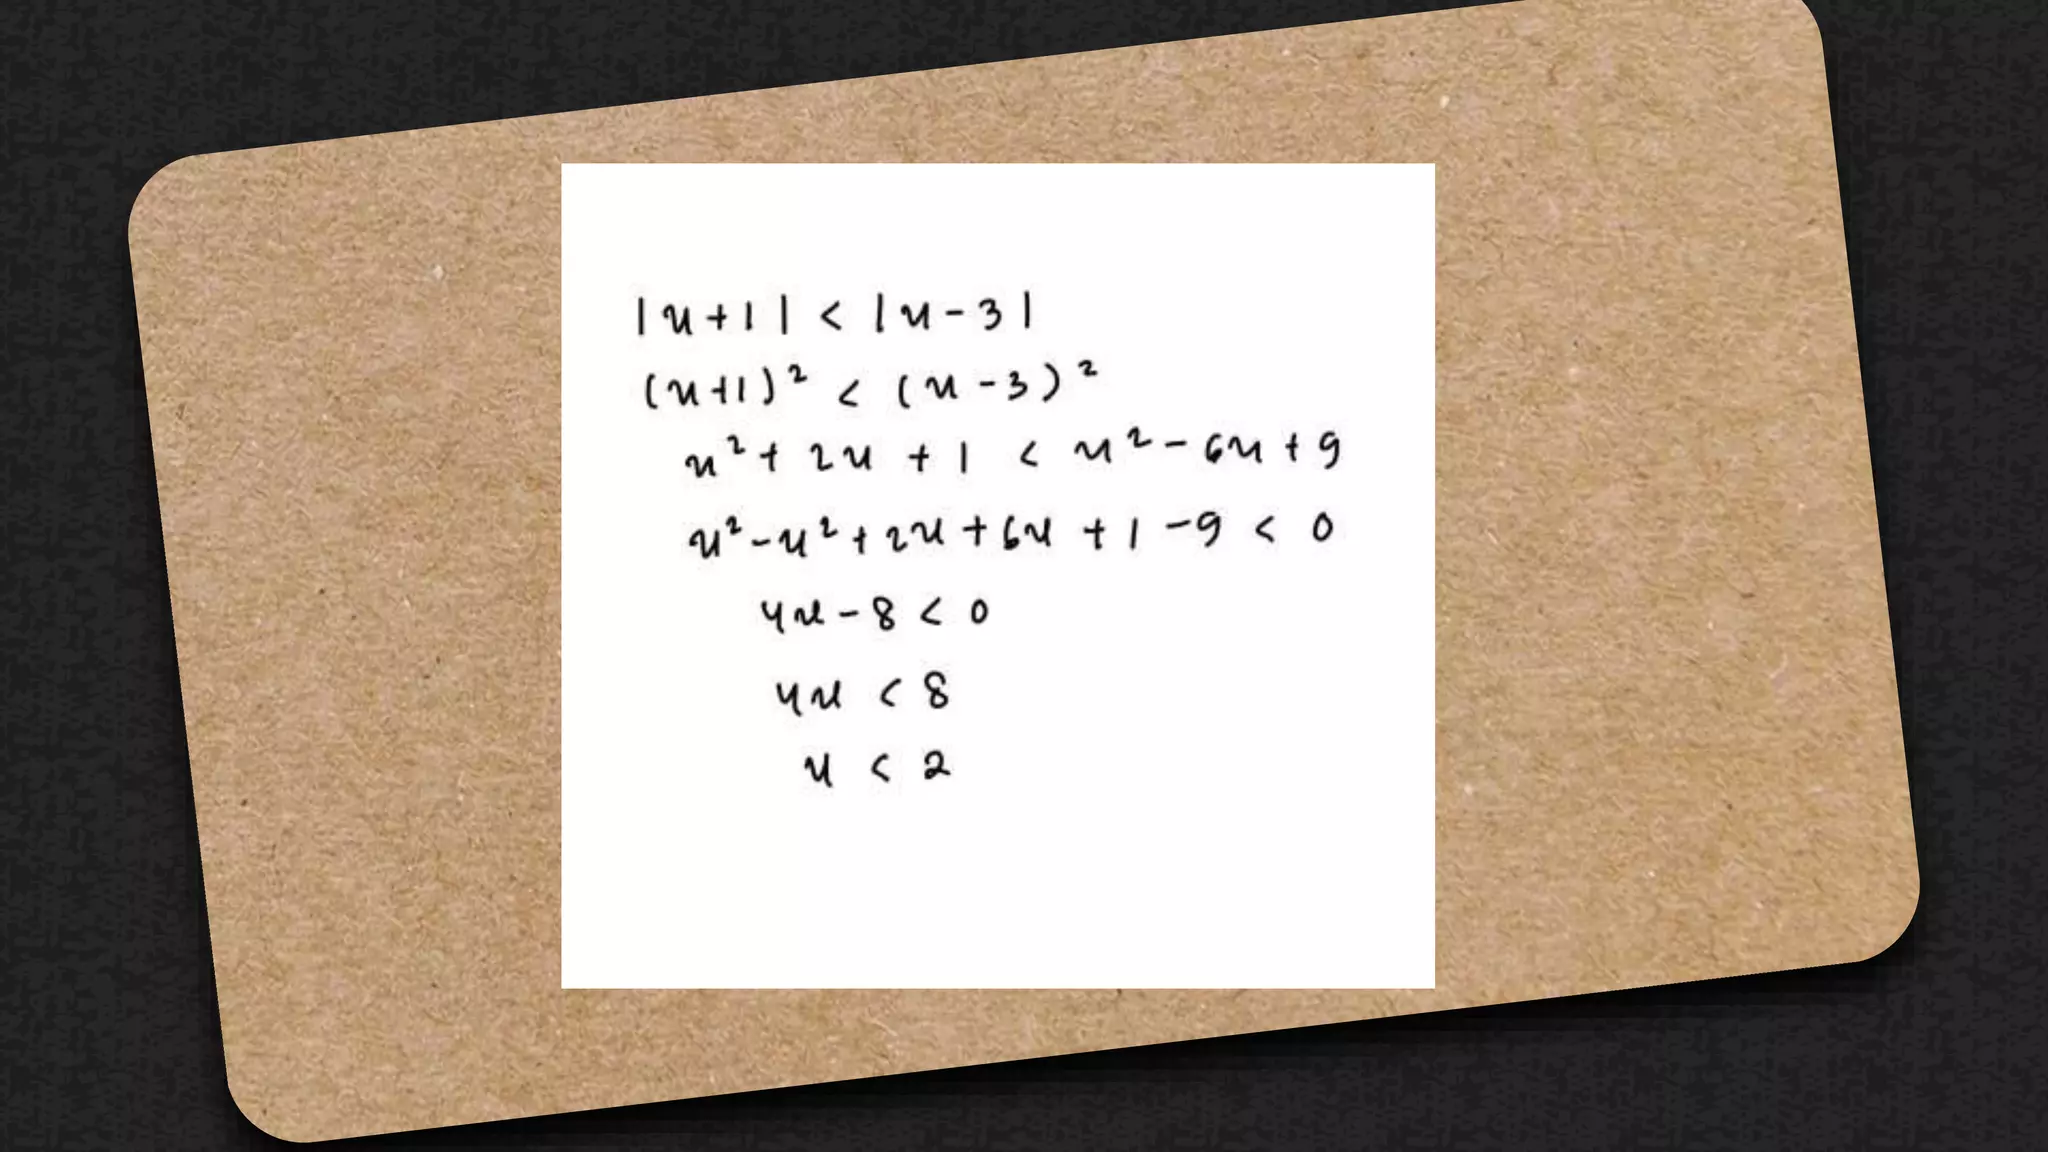 |x+1| < |x-3|
(x+1)² < (x-3)²
x²+ 2x + 1 < x²- 6x + 9
x²-x²+2x+6x + 1 -9 < 0
4x-8 < 0
4x < 8
x < 2